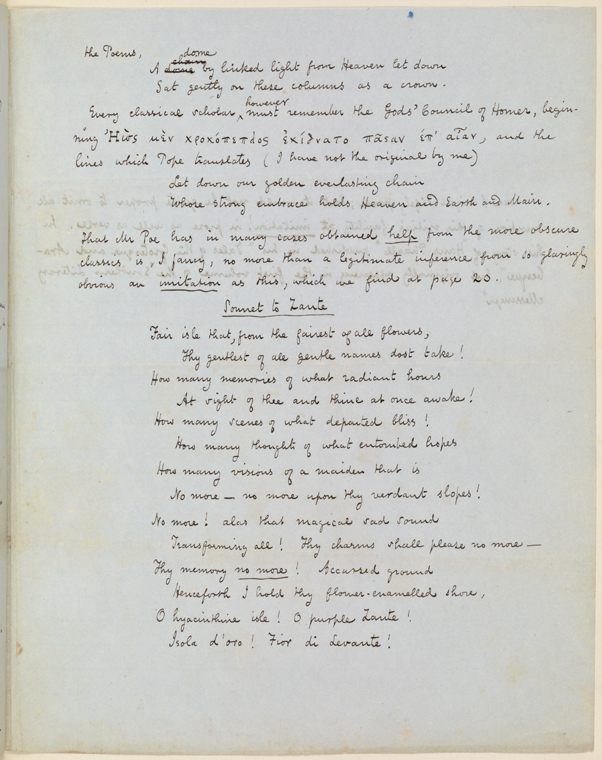 the Poems,
A dome by linked light from Heaven let down
Sat gently on these columns as a crown.
Every classical scholar, however must remember the Gods' Council of Homer, begin-
ning Ἠὼς μὲν χροχόπεπλος ἐχίδνατο πᾶσαν ἐπ' αἶαν, and the
lines which Pope translates (I have not the original by me)
Let down our golden everlasting chain
Whose strong embrace holds Heaven and Earth and Main.
That Mr Poe has in many cases obtained help from the more obscure
classics is, I fancy, no more than a legitimate inference from so glaringly
obvious an imitation as this, which we find at page 20.
Sonnet to Zante
Fair isle that, from the fairest of all flowers,
Thy gentlest of all gentle names dost take!
How many memories of what radiant hours
At sight of thee and thine at once awake!
How many scenes of what departed bliss!
How many thoughts of what entombed hopes
How many visions of a maiden that is
No more — no more upon thy verdant slopes!
No more! alas that magical sad sound
Transforming all! Thy charms shall please no more —
Thy memory no more! Accursed ground
Henceforth I hold thy flower-enamelled shore,
O hyacinthine isle! O purple Zante!
Isola d'oro! Fior di Levante!